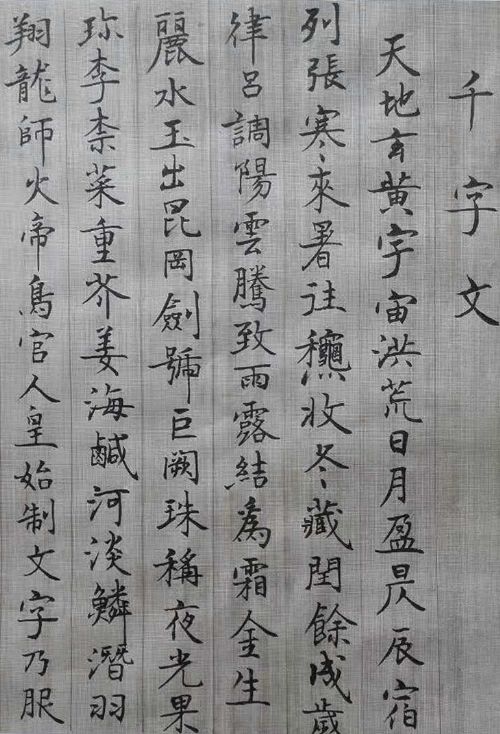 千字文
天地玄黄宇宙洪荒日月盈昃辰宿
列張寒來暑往龝收冬藏閏餘成歲
律呂調陽雲騰致雨露結為霜金生
麗水玉出昆岡劍號巨闕珠稱夜光果
珎李柰菜重芥姜海鹹河淡鱗潛羽
翔龍師火帝鳥官人皇始制文字乃服